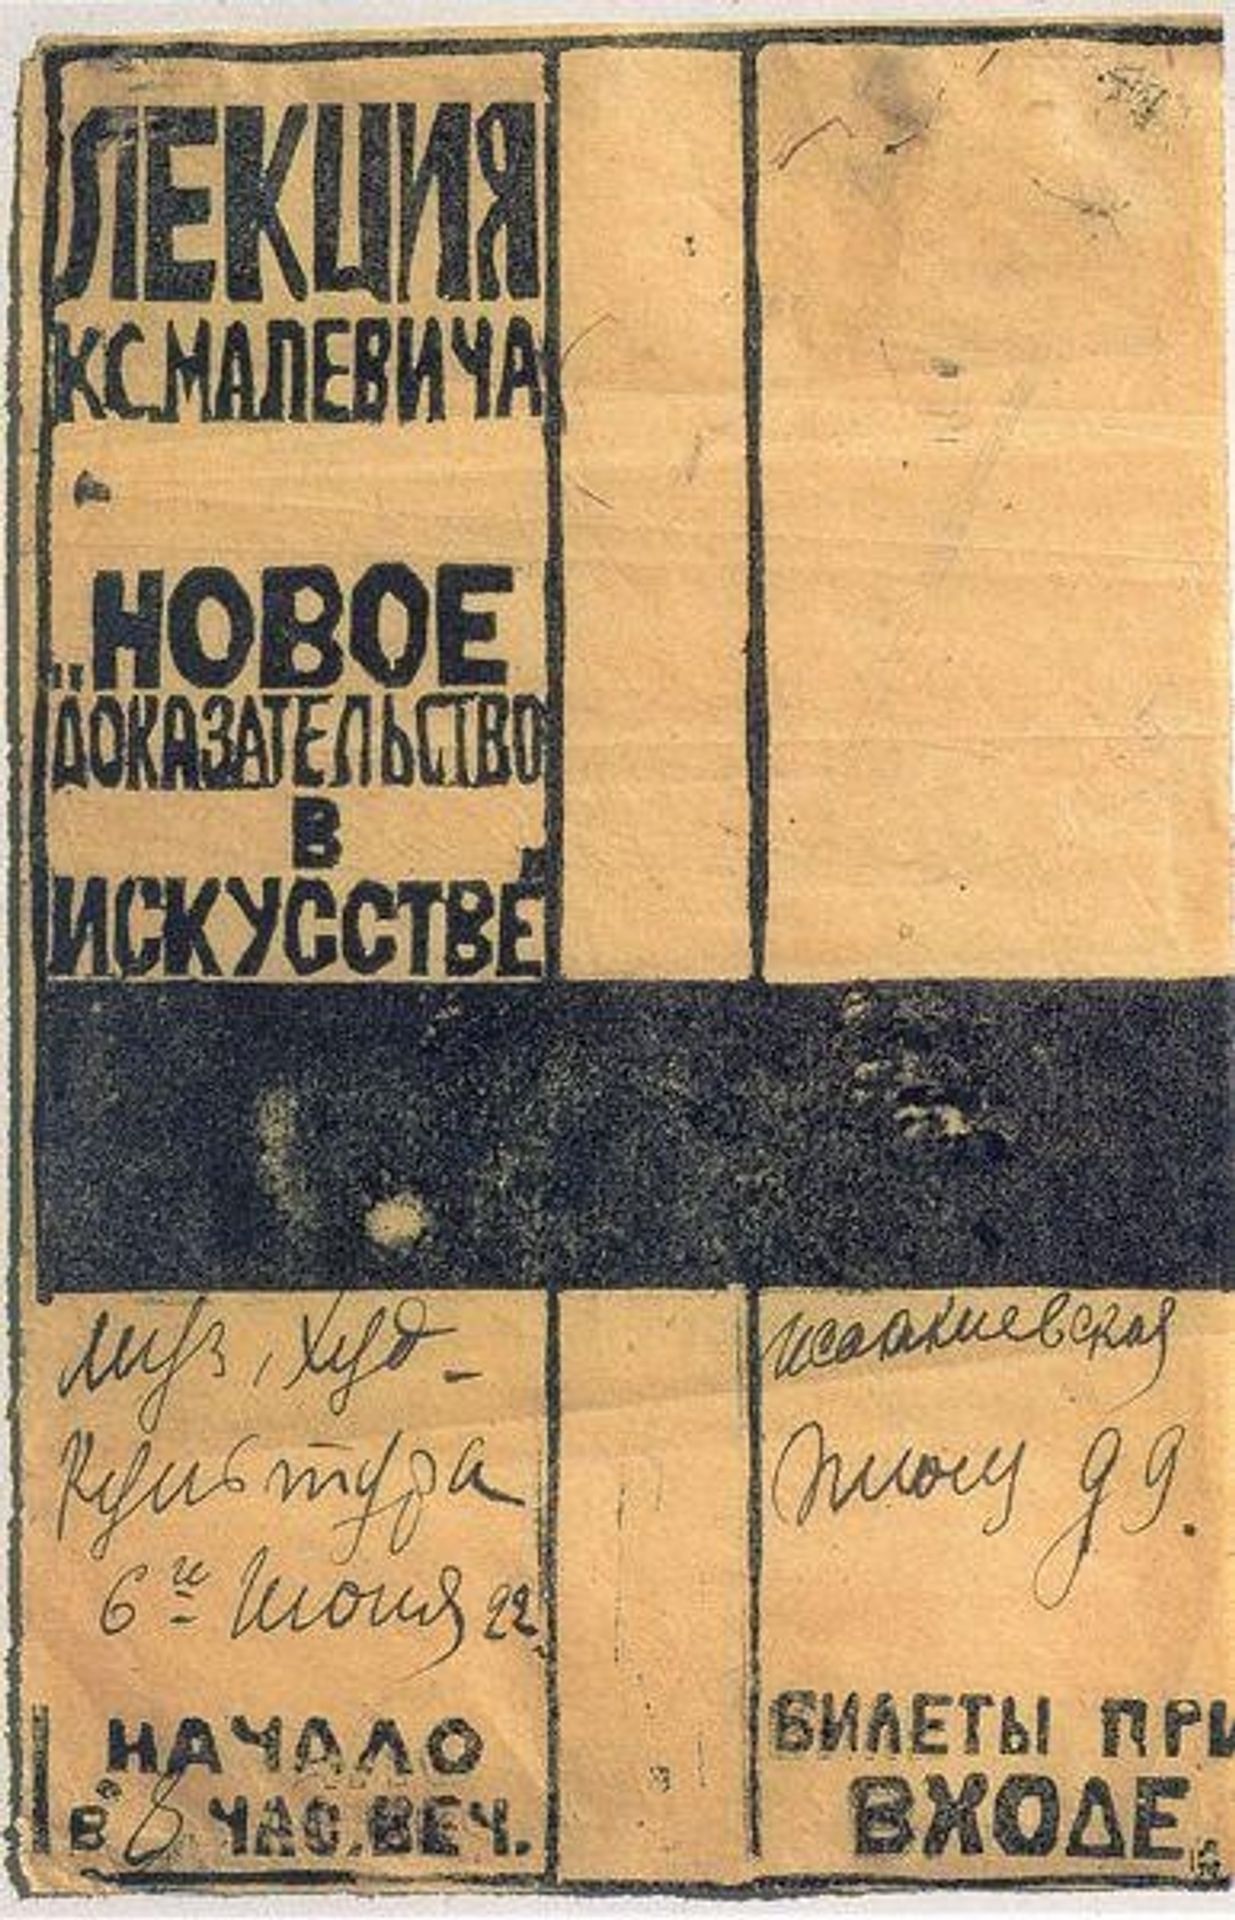 ЛЕКЦИЯ
К.С.МАЛЕВИЧА
„НОВОЕ
ДОКАЗАТЕЛЬСТВО
В
ИСКУССТВЕ"
муз, худ-
культура
6го июня 22
НАЧАЛО
В 8 ЧАС.ВЕЧ.
исаакиевская
площ д 9.
БИЛЕТЫ ПРИ
ВХОДЕ.